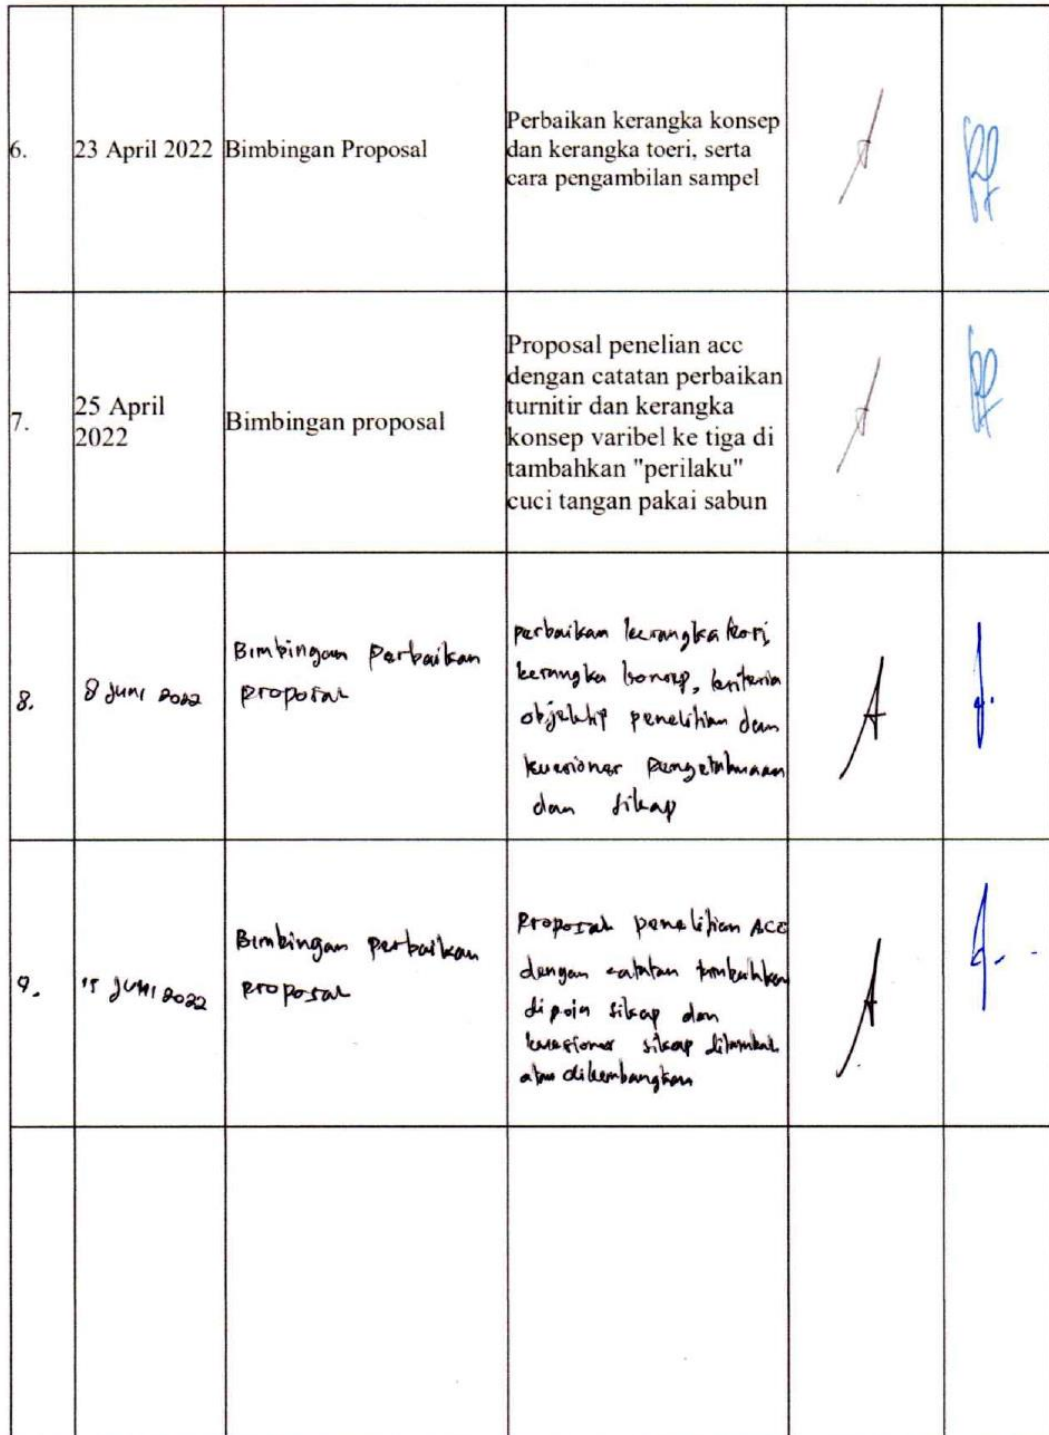 6.
23 April 2022
Bimbingan Proposal
Perbaikan kerangka konsep
dan kerangka toeri, serta
cara pengambilan sampel
7.
25 April
2022
Bimbingan proposal
Proposal penelian acc
dengan catatan perbaikan
turnitir dan kerangka
konsep varibel ke tiga di
tambahkan "perilaku"
cuci tangan pakai sabun
8.
8 Juni 2022
Bimbingan perbaikan
proposal
perbaikan kerangka teori,
kerangka konsep, kriteria
objektif penelitian dan
kuesioner pengetahuaan
dan sikap
9.
15 Juni 2022
Bimbingan perbaikan
proposal
Proposal penelitian ACC
dengan catatan tambahkan
di poin sikap dan
kuesioner sikap ditambah
atau dikembangkan